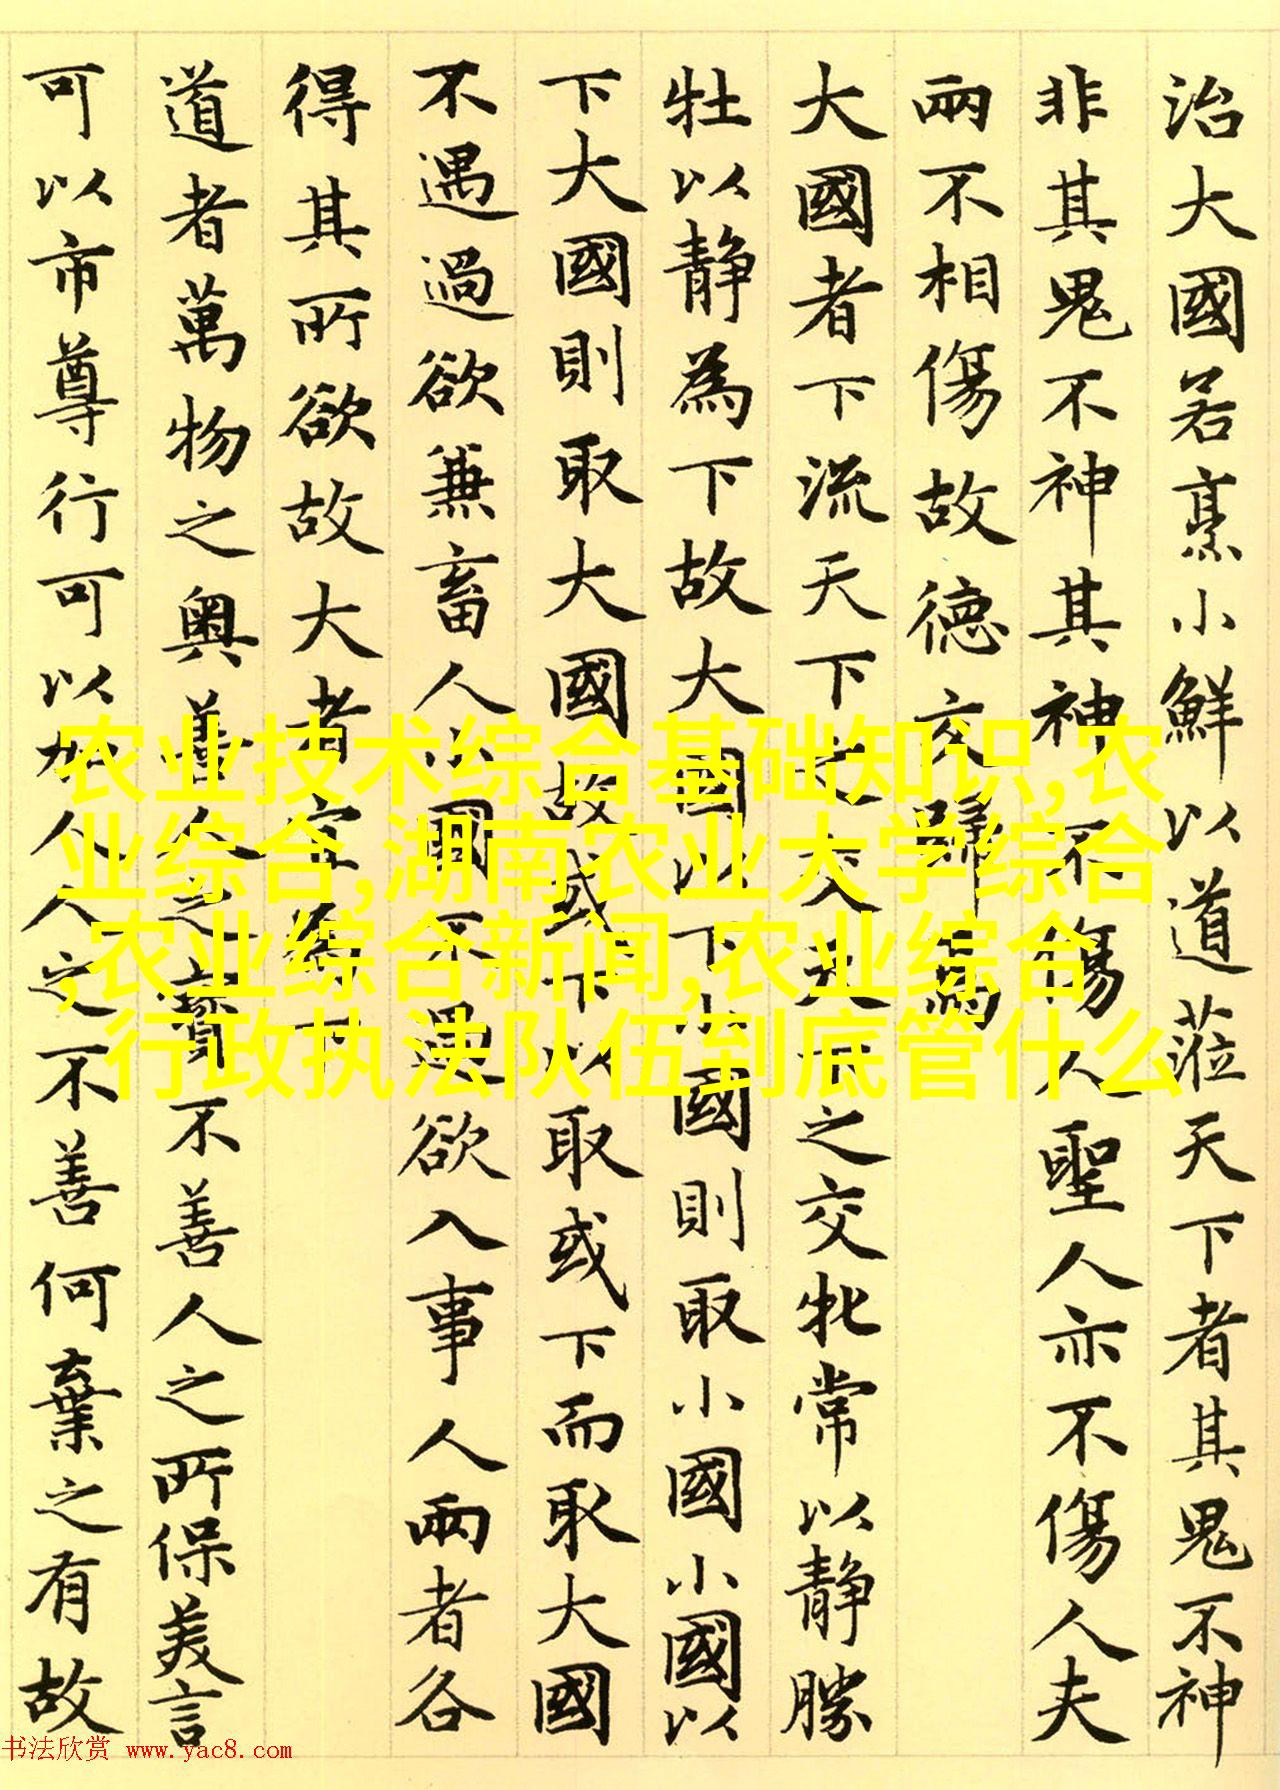 治大國若烹小鮮以道蒞天下者其鬼不神
非其鬼不神其神不傷人聖人亦不傷人夫
兩不相傷故德交歸焉
大國者下流天下之交天下之交牝常以静勝
牡以静為下故大國以下小國則取小國小國以
下大國則取大國故或下以取或下而取大國
不遇過欲兼畜人小國不過欲入事人兩者各
得其所欲故大者宜為下
道者萬物之奥善人之寶不善人之所保美言
可以市尊行可以加人人之不善何棄之有故
农业技术综合基础知识,农
业综合,湖南农业大学综合
,农业综合新闻,农业综合
行政执法队伍到底管什么
书法欣赏 www.yac8.com